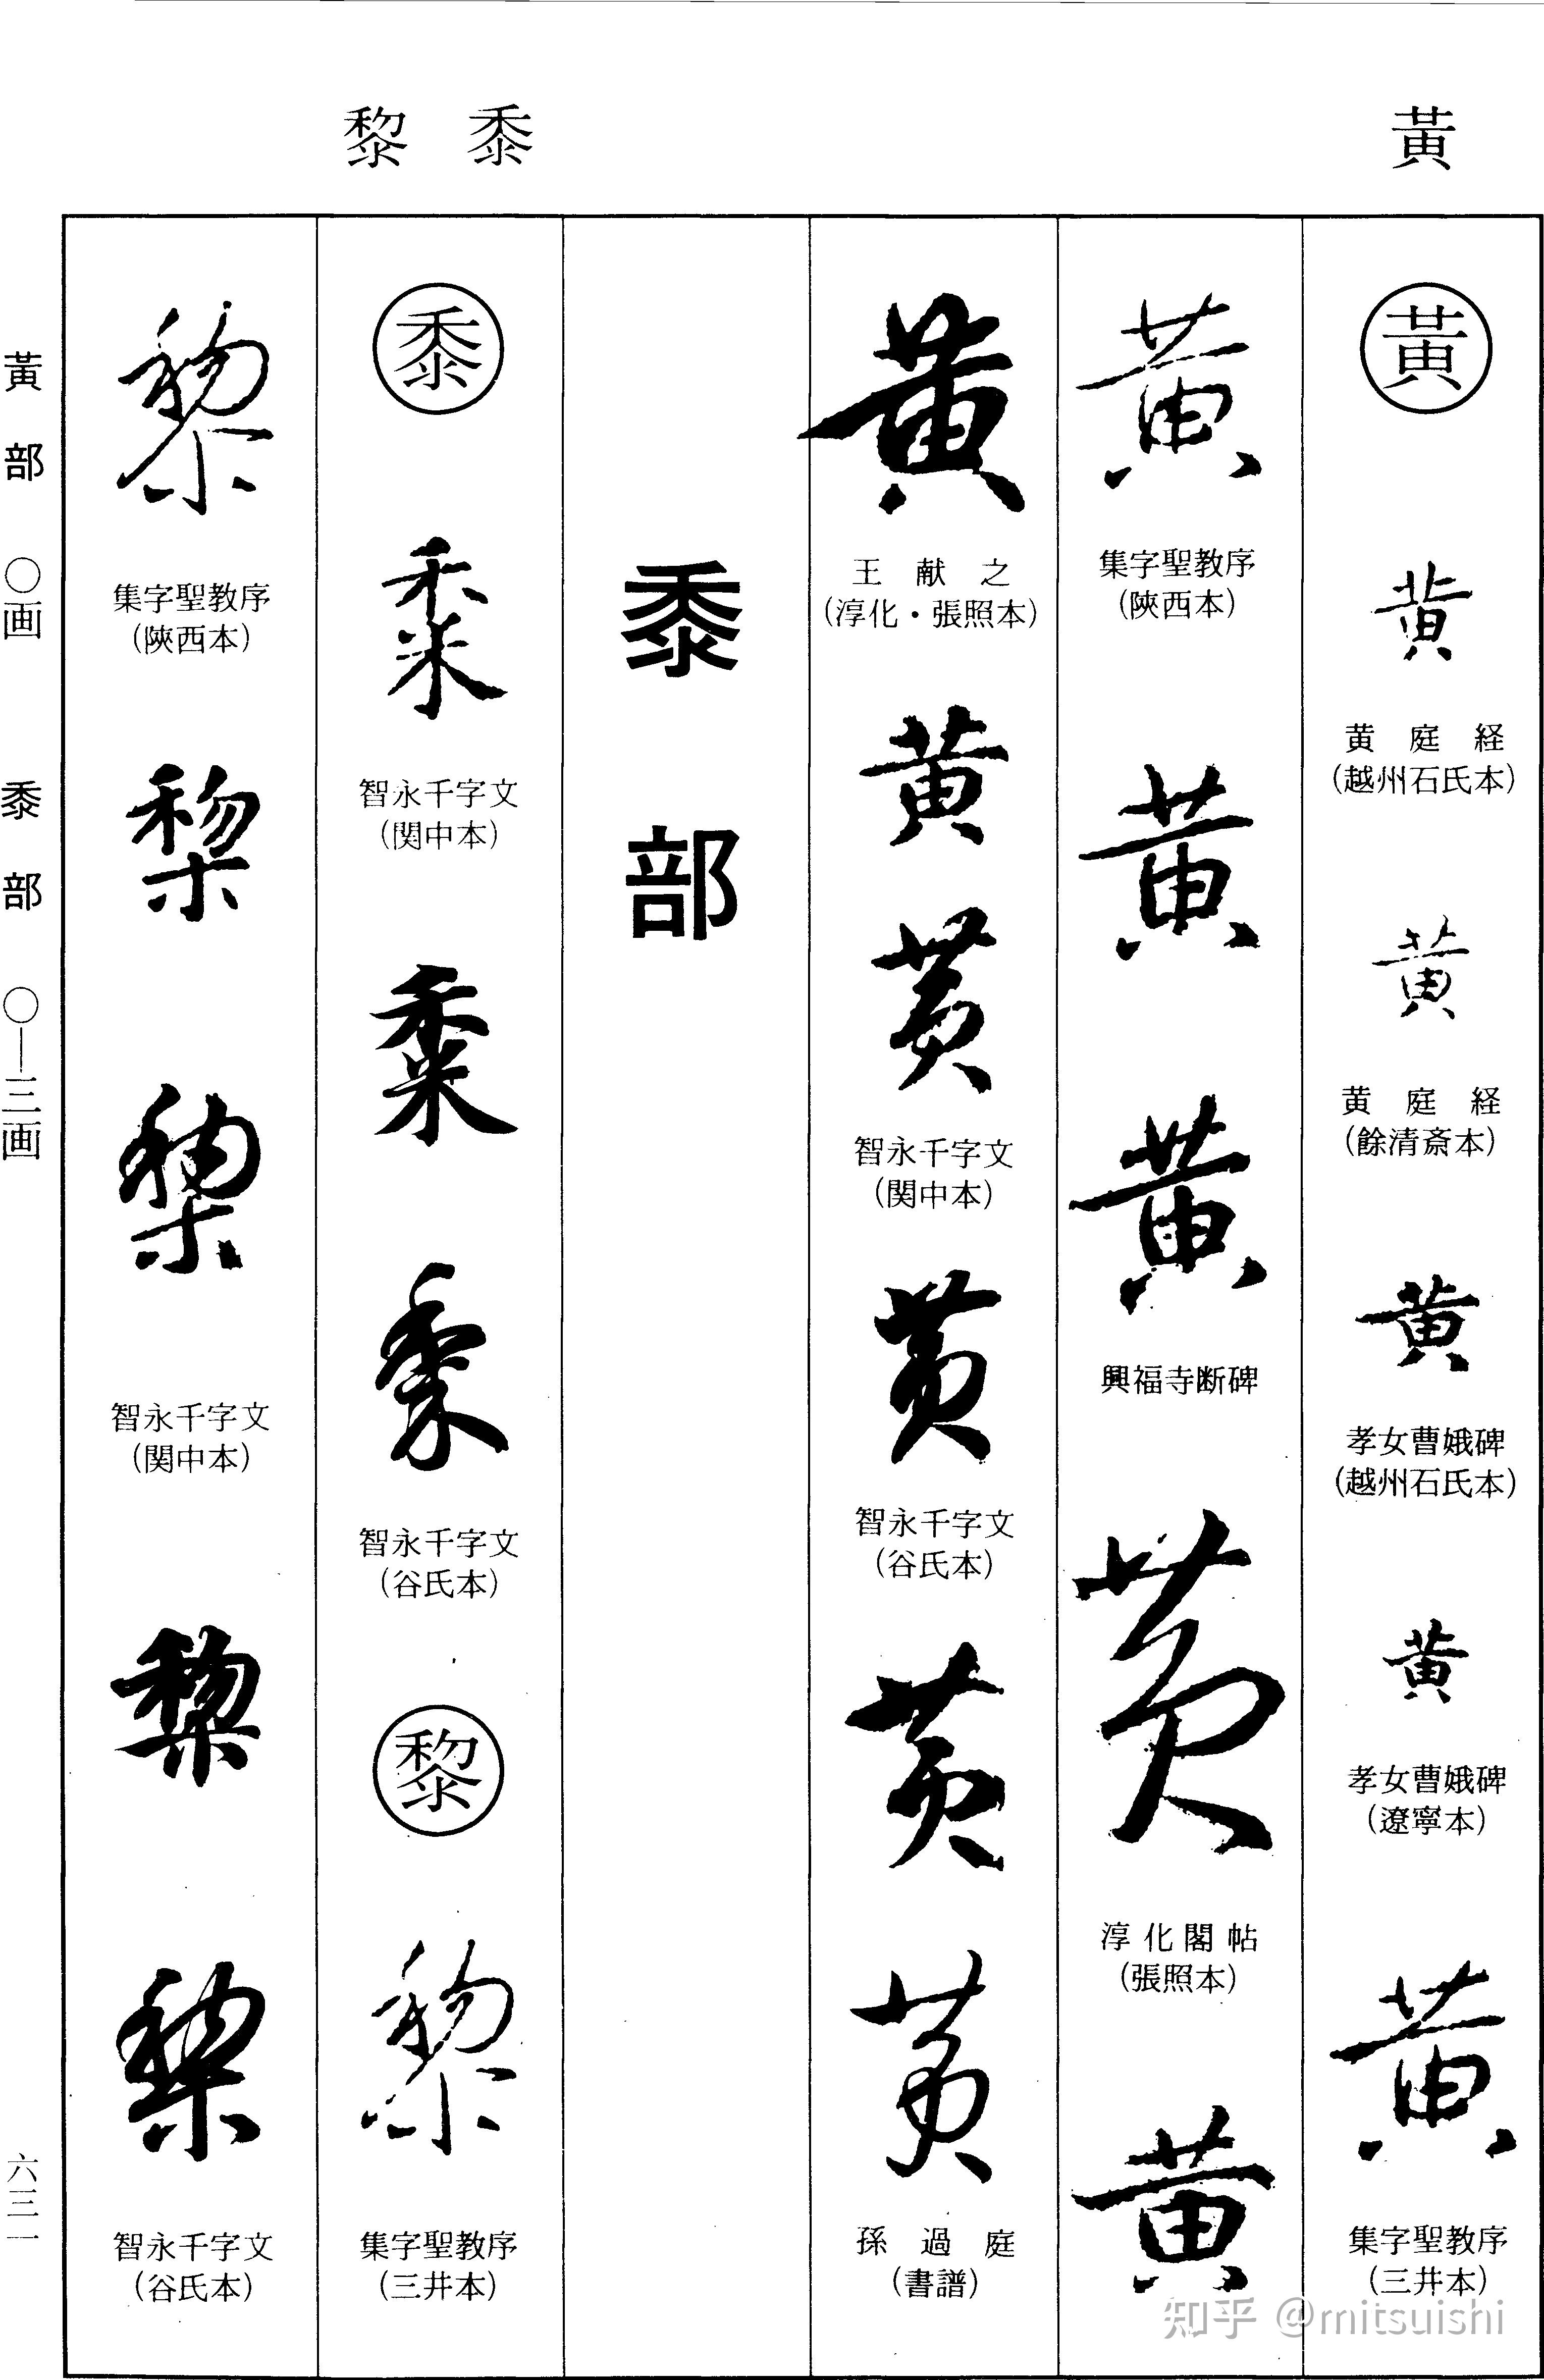 黃
黍 黎
黃
黄
黄庭経
(越州石氏本)
黄
黄庭経
(餘清斎本)
黄
孝女曹娥碑
(越州石氏本)
黄
孝女曹娥碑
(遼寧本)
黄
集字聖教序
(三井本)
黄
集字聖教序
(陝西本)
黄
黄
興福寺断碑
黄
淳化閣帖
(張照本)
黄
黄
王献之
(淳化・張照本)
黄
黄
智永千字文
(関中本)
黄
智永千字文
(谷氏本)
黄
黄
孫過庭
(書譜)
黍部
黍
黍
智永千字文
(関中本)
黍
黍
智永千字文
(谷氏本)
黎
黎
集字聖教序
(三井本)
黎
集字聖教序
(陝西本)
黎
黎
智永千字文
(関中本)
黎
黎
智永千字文
(谷氏本)
黃部 〇画 黍部 〇—三画
六三一
知乎 @mitsuishi